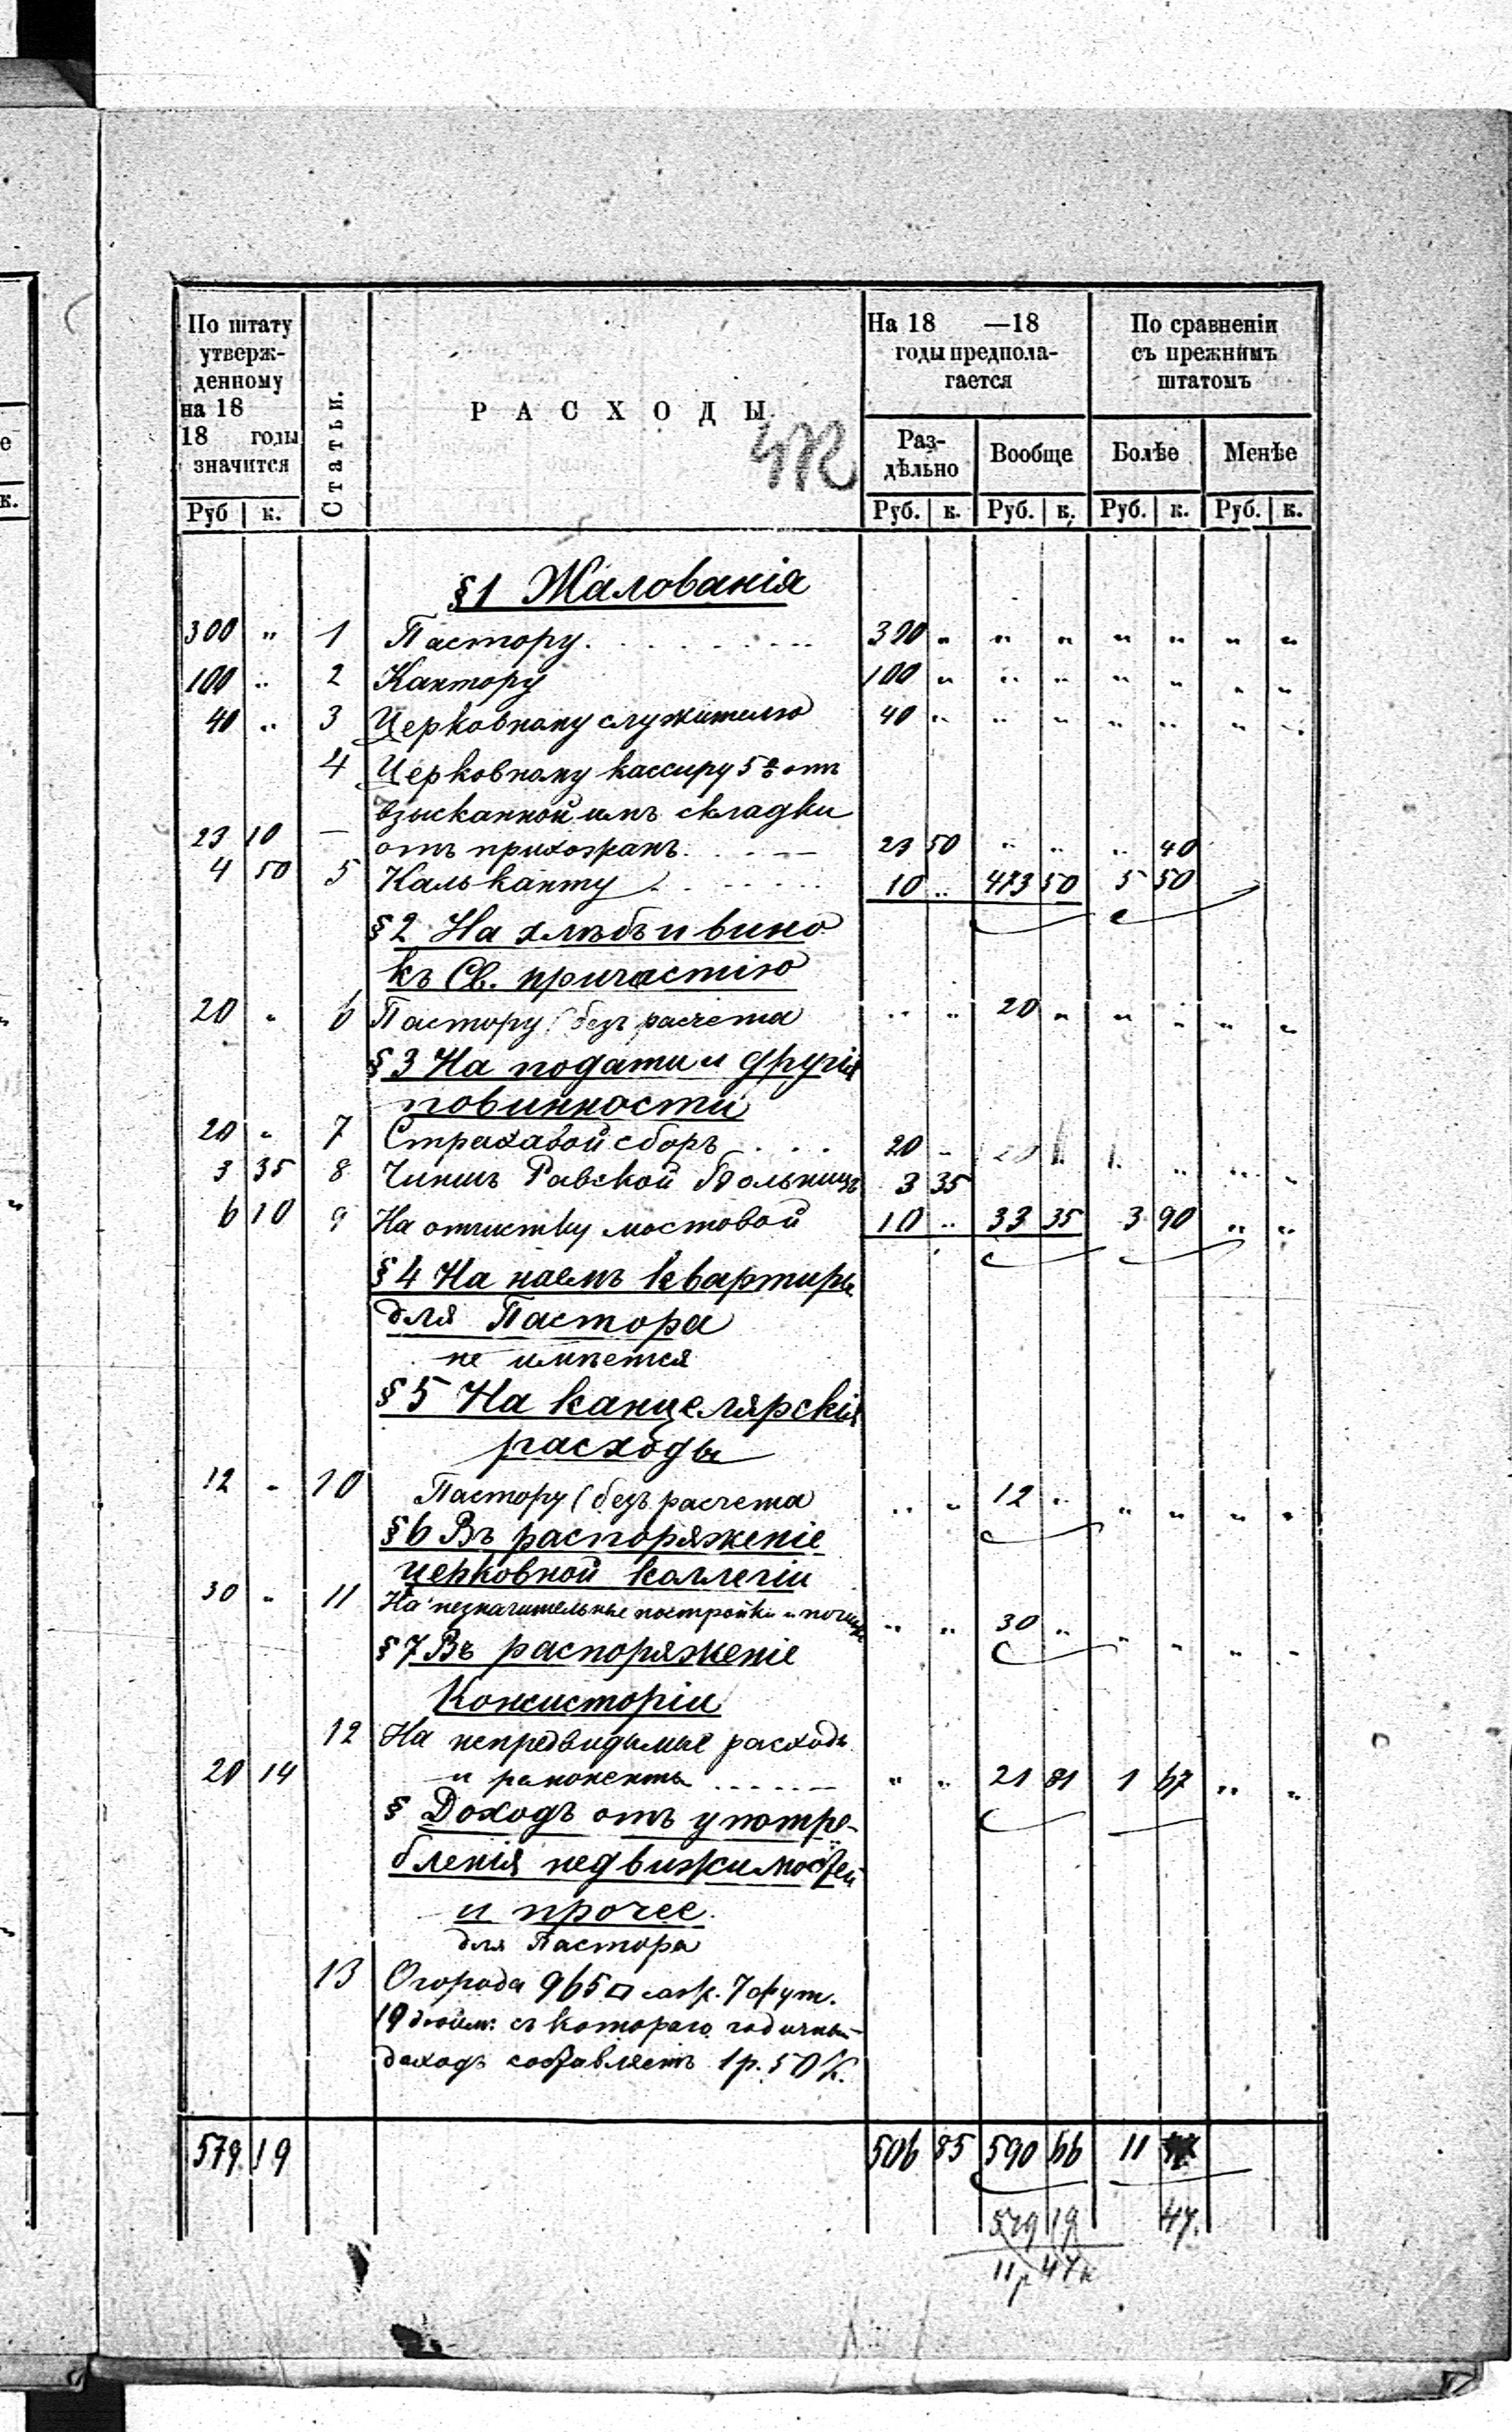 По штату утверж-денному на 18 18 годы значится Руб к.
Статьи.
РАСХОДЫ.
На 18 —18 годы предпола-гается
Раз-дѣльно Руб. к.
Вообще Руб. к.
По сравненіи съ прежнимъ штатомъ
Болѣе Руб. к.
Менѣе Руб. к.
§ 1 Жалованія
300 „ 1 Пастору. . . . . . . . . 300 „ „ „ „ „ „ „
100 „ 2 Кантору 100 „ „ „ „ „ „ „
40 „ 3 Церковному служителю 40 „ „ „ „ „ „ „
4 Церковному кассиру 5% отъ
взысканной имъ складки
23 10 — отъ прихожанъ. . . . — 23 50 „ „ „ 40
4 50 5 Кальканту . . . . . . 10 „ 473 50 5 50
§ 2 На хлѣбъ и вино
къ Св. причастію
20 „ 6 Пастору (безъ расчета „ „ 20 „ „ „ „ „
§ 3 На подати и другія
повинности
20 „ 7 Страховой сборъ . . . . 20 „
3 35 8 Чиншъ Равской Больницѣ 3 35
6 10 9 На отчистку мостовой 10 „ 33 35 3 90 „ „
§ 4 На наемъ квартиры
для Пастора
не имѣется
§ 5 На канцелярскія
расходы
12 „ 10 Пастору (безъ расчета „ „ 12 „ „ „ „ „
§ 6 Въ распоряженіе
церковной коллегіи
30 „ 11 На незначительные постройки и починки „ „ 30 „ „ „ „ „
§ 7 Въ распоряженіе
Консисторіи
12 На непредвидимые расходы
20 14 и ремонты . . . . . — „ „ 21 81 1 67 „ „
§ Доходъ отъ употре-
бленія недвижимостей
и прочее.
для Пастора
13 Огорода 965 □ саж. 7 фут.
19 дюйм: съ котораго годичный
доходъ составляетъ 1 р. 50 к.
579 19 506 85 590 66 11
579 19 47.
11 р 47 к